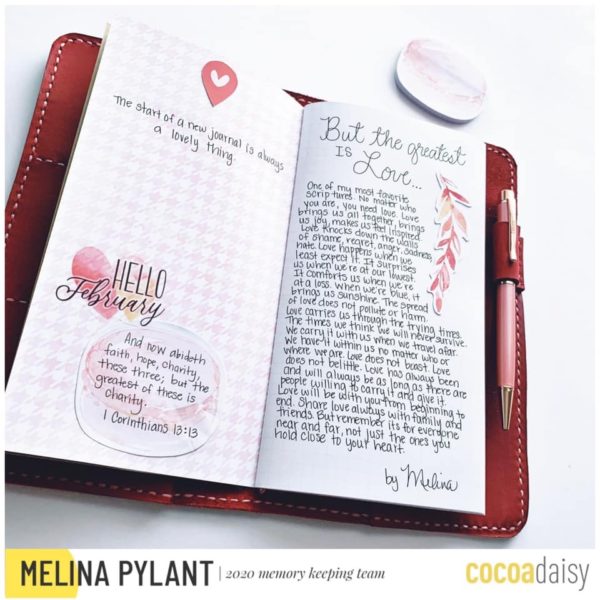 The start of a new journal is always
a lovely thing.
HELLO
February
And now abideth
faith, hope, charity,
these three; but the
greatest of these is
charity.
1 Corinthians 13:13
But the greatest
IS
Love...
One of my most favorite
scriptures. No matter who
you are, you need love. Love
brings us all together, brings
us joy, makes us feel inspired.
Love knocks down the walls
of shame, regret, anger, sadness,
hate. Love happens when we
least expect it. It surprises
us when we're at our lowest.
It comforts us when we're
at a loss. When we're blue, it
brings us sunshine. The spread
of love does not pollute or harm.
Love carries us through the trying times.
The times we think we will never survive.
We carry it with us when we travel afar.
We have it within us no matter who or
where we are. Love does not boast. Love
does not belittle. Love has always been
and will always be as long as there are
people willing to carry it and give it.
Love will be with you from beginning to
end. Share love always with family and
friends. But remember its for everyone
near and far, not just the ones you
hold close to your heart.
by Melina
MELINA PYLANT | 2020 memory keeping team
cocoadaisy